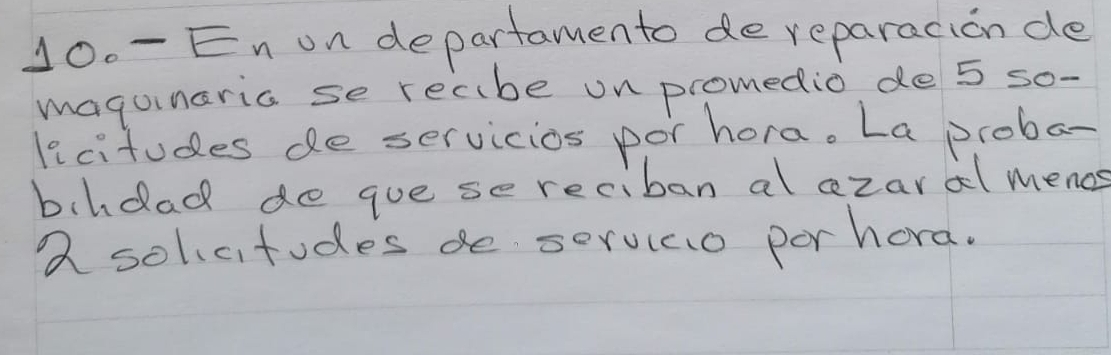 10.- En un departamento de reparación de
maquinaria se recibe un promedio de 5 so-
licitudes de servicios por hora. La proba-
bilidad de que se reciban al azar al menos
2 solicitudes de servicio por hora.